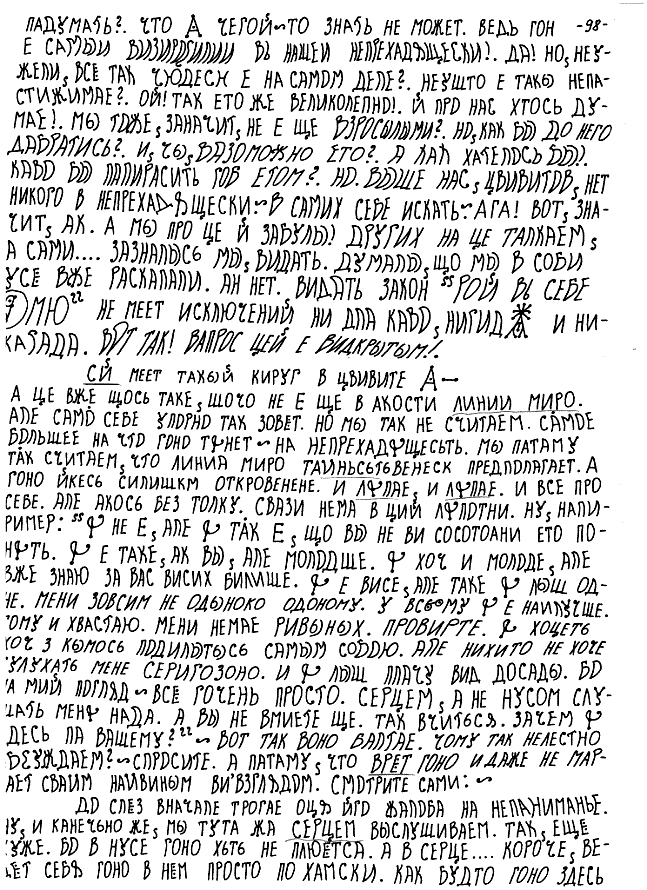 ПАДУМАТЬ?. ЧТО ЧЕГОЙ~ТО ЗНАТЬ НЕ МОЖЕТ. ВЕДЬ ГОН -98-
Е САМЫЙ В НАШЕЙ НЕПРЕХАДЯЩЕСКИ!. ДА! НО, НЕУ-
ЖЕЛИ, ВСЕ ТАК ЧЮДЕСН Е НА САМОМ ДЕЛЕ?. НЕУШТО Е ТАКЫ НЕПА-
СТИЖИМАЕ?. ОЙ! ТАК ЕТО ЖЕ ВЕЛИКОЛЕПНО!. Й ПРО НАС ХТОСЬ ДУ-
МАЕ!. МЫ ТОЖЕ, ЗАНАЧИТ, НЕ Е ЩЕ ВЗРОСЫЛЫМИ?. НО, КАК БЫ ДО НЕГО
ДАБРАТИСЬ?. И, ЧЫ, ВАЗОМОЖНО ЕТО?. А КАК ХАТЕЛОСЬ БЫ!.
КАВО БЫ ПАПИРАСИТЬ ГОБ ЕТОМ?. НО. ВЫШЕ НАС, ЦВИВИТОВ, НЕТ
НИКОГО В НЕПРЕХАДЯЩЕСКИ~В САМИХ СЕБЕ ИСКАТЬ~АГА! ВОТ, ЗНА-
ЧИТ, АК. А МЫ ПРО ЦЕ Й ЗАБУЛЫ! ДРУГИХ НА ЦЕ ТАЛКАЕМ,
А САМИ.... ЗАЗНАЛЫСЬ МЫ, ВИДАТЬ. ДУМАЛЫ, ЩО МЫ В СОБИ
УСЕ ВЖЕ РАСКАПАЛИ. АН НЕТ. ВИДАТЬ ЗАКОН "РОЙ ВЬ СЕБЕ
НЕ МЕЕТ ИСКЛЮЧЕНИЙ НИ ДЛА КАВО, НИГИДЕ И НИ-
КАГАДА. ВОТ ТАК! ВАПРОС ЦЕЙ Е ВИДКРЫТЫМ!.
СЙ МЕЕТ ТАКЫЙ КИРУГ В ЦВИВИТЕ
А ЦЕ ВЖЕ ЩОСЬ ТАКЕ, ШОЧО НЕ Е ЩЕ В АКОСТИ ЛИНИИ МИРО.
АЛЕ САМО СЕБЕ УПОРНО ТАК ЗОВЕТ. НО МЫ ТАК НЕ СЧИТАЕМ. САМОЕ
БОЛЬШЕЕ НА ЧТО ГОНО ТЯНЕТ~НА НЕПРЕХАДЯЩЕСЬТЬ. МЫ ПАТАМУ
ТАК СЧИТАЕМ, ЧТО ЛИНИА МИРО ТАИНЬСЬТЬВЕНЕСК ПРЕДПОЛАГАЕТ. А
ГОНО ЙКЕСЬ СИЛИШКМ ОТКРОВЕНЕНЕ. И ЛЯПАЕ, И ЛЯПАЕ. И ВСЕ ПРО
СЕБЕ. АЛЕ АКОСЬ БЕЗ ТОЛКУ. СВАЗИ НЕМА В ЦИЙ ЛЯПОТНИ. НУ, НАПИ-
РИМЕР: "Я НЕ Е, АЛЕ Я ТАК Е, ЩО ВЫ НЕ ВИ СОСОТОАНИ ЕТО ПО-
НЯТЬ. Я Е ТАКЕ, АК ВЫ, АЛЕ МОЛОДШЕ. Я ХОЧ И МОЛОДЕ, АЛЕ
ВЖЕ ЗНАЮ ЗА ВАС ВИСИХ БИЛИШЕ. Я Е ВИСЕ, АЛЕ ТАКЕ Я ЛЫШ ОД-
НЕ. МЕНИ ЗОВСИМ НЕ ОДЫНОКО ОДОНОМУ. У ВСЬОМУ Я Е НАИЛУЧШЕ.
ТОМУ И ХВАСТАЮ. МЕНИ НЕМАЕ РИВЫНЫХ. ПРОВИРТЕ. Я ХОЦЕТЬ
ХОЧ З КЫМОСЬ ПОДИЛЫТЫСЬ САМЫМ СОБОЮ. АЛЕ НИХИТО НЕ ХОЧЕ
УЛУХАТЬ МЕНЕ СЕРИГОЗОНО. И Я ЛЫШ ПЛАЧУ ВИД ДОСАДЫ. БО
А МИЙ ПОГЛЯД~ВСЕ ГОЧЕНЬ ПРОСТО. СЕРЦЕМ, А НЕ НУСОМ СЛУ-
ШАТЬ МЕНЯ НАДА. А ВЫ НЕ ВМИЕТЕ ЩЕ. ТАК ВЧИТЬСЯ. ЗАЧЕМ Я
ДЕСЬ ПА ВАШЕМУ?"~ВОТ ТАК ВОНО БАЛТАЕ. ЧОМУ ТАК НЕЛЕСТНО
БСУЖДАЕМ?~СПРОСИТЕ. А ПАТАМУ, ЧТО ВРЕТ ГОНО И ДАЖЕ НЕ МАР-
АЕТ СВАИМ НАИВИНЫМ ВИ'ВЗГЛЯДОМ. СМОТРИТЕ САМИ:~
ДО СЛЕЗ ВНАЧАЛЕ ТРОГАЕ ОЦЯ ЙГО ЖАЛОБА НА НЕПАНИМАНЬЕ.
НУ, И КАНЕЧЬНО ЖЕ, МЫ ТУТА ЖА СЕРЦЕМ ВЫСЛУШИВАЕМ. ТАК, ЕЩЕ
ХУЖЕ. БО В НУСЕ ГОНО ХЬТЬ НЕ ПЛЮЁТСА. А В СЕРЦЕ.... КОРОЧЕ, ВЕ-
ДЕТ СЕБЯ ГОНО В НЕМ ПРОСТО ПО ХАМСКИ. КАК БУДТО ГОНО ЗДЕСЬ